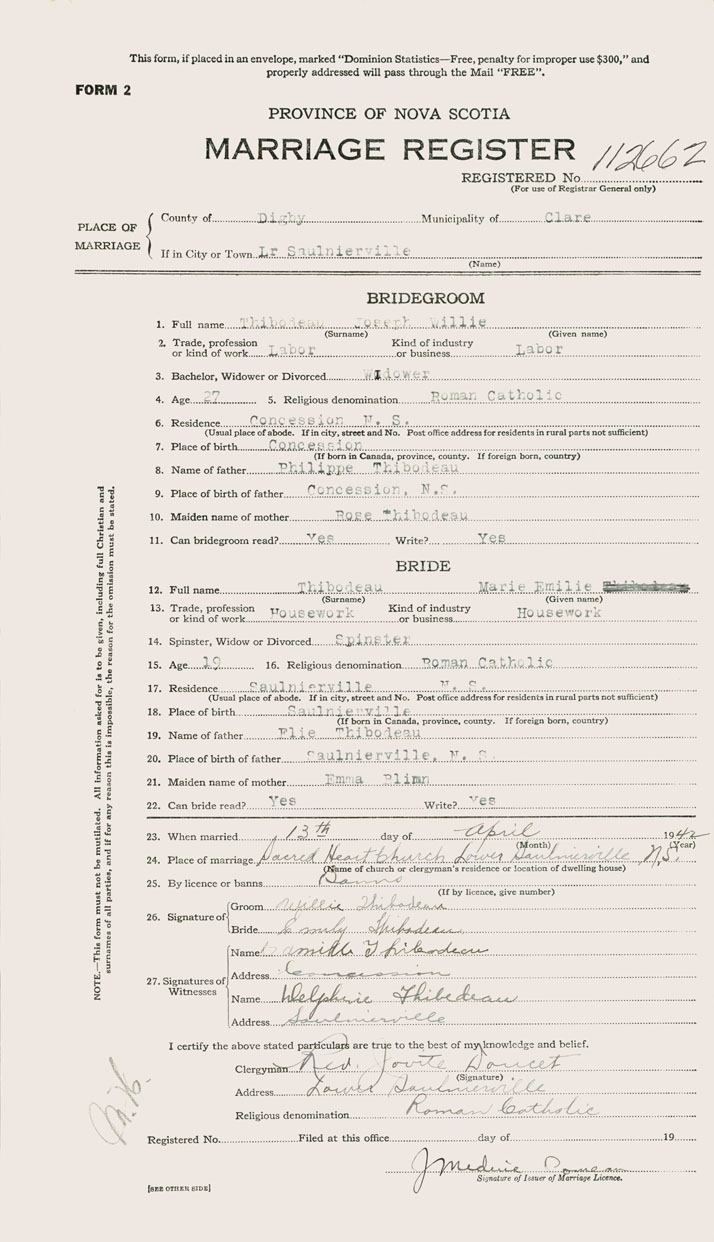 This form, if placed in an envelope, marked "Dominion Statistics—Free, penalty for improper use $300," and
properly addressed will pass through the Mail "FREE".
FORM 2
PROVINCE OF NOVA SCOTIA
MARRIAGE REGISTER
112662
REGISTERED No.
(For use of Registrar General only)
PLACE OF MARRIAGE
County of Digby Municipality of Clare
If in City or Town Lr Saulnierville
(Name)
BRIDEGROOM
1. Full name Thibodeau Joseph Willie
(Surname) (Given name)
2. Trade, profession or kind of work Labor Kind of industry or business Labor
3. Bachelor, Widower or Divorced Widower
4. Age 27 5. Religious denomination Roman Catholic
6. Residence Concession N. S.
(Usual place of abode. If in city, street and No. Post office address for residents in rural parts not sufficient)
7. Place of birth Concession
(If born in Canada, province, county. If foreign born, country)
8. Name of father Philippe Thibodeau
9. Place of birth of father Concession, N.S.
10. Maiden name of mother Rose Thibodeau
11. Can bridegroom read? Yes Write? Yes
BRIDE
12. Full name Thibodeau Marie Emilie
(Surname) (Given name)
13. Trade, profession or kind of work Housework Kind of industry or business Housework
14. Spinster, Widow or Divorced Spinster
15. Age 19 16. Religious denomination Roman Catholic
17. Residence Saulnierville N. S.
(Usual place of abode. If in city, street and No. Post office address for residents in rural parts not sufficient)
18. Place of birth Saulnierville
(If born in Canada, province, county. If foreign born, country)
19. Name of father Elie Thibodeau
20. Place of birth of father Saulnierville, N. S.
21. Maiden name of mother Emma Plimn
22. Can bride read? Yes Write? Yes
23. When married 13th day of April 1942
(Month) (Year)
24. Place of marriage Sacred Heart Church Lower Saulnierville N.S.
(Name of church or clergyman's residence or location of dwelling house)
25. By licence or banns Banns
(If by licence, give number)
26. Signature of
Groom Willie Thibodeau
Bride Emily Thibodeau
27. Signatures of Witnesses
Name Camille Thibodeau
Address Concession
Name Delphine Thibedeau
Address Saulnierville
I certify the above stated particulars are true to the best of my knowledge and belief.
Clergyman Rev. Jovite Doucet
(Signature)
Address Lower Saulnierville
Religious denomination Roman Catholic
Registered No. Filed at this office day of 19
J Medric
Signature of Issuer of Marriage Licence.
[SEE OTHER SIDE]
NOTE.—This form must not be mutilated. All information asked for is to be given, including full Christian and
surnames of all parties, and if for any reason this is impossible, the reason for the omission must be stated.